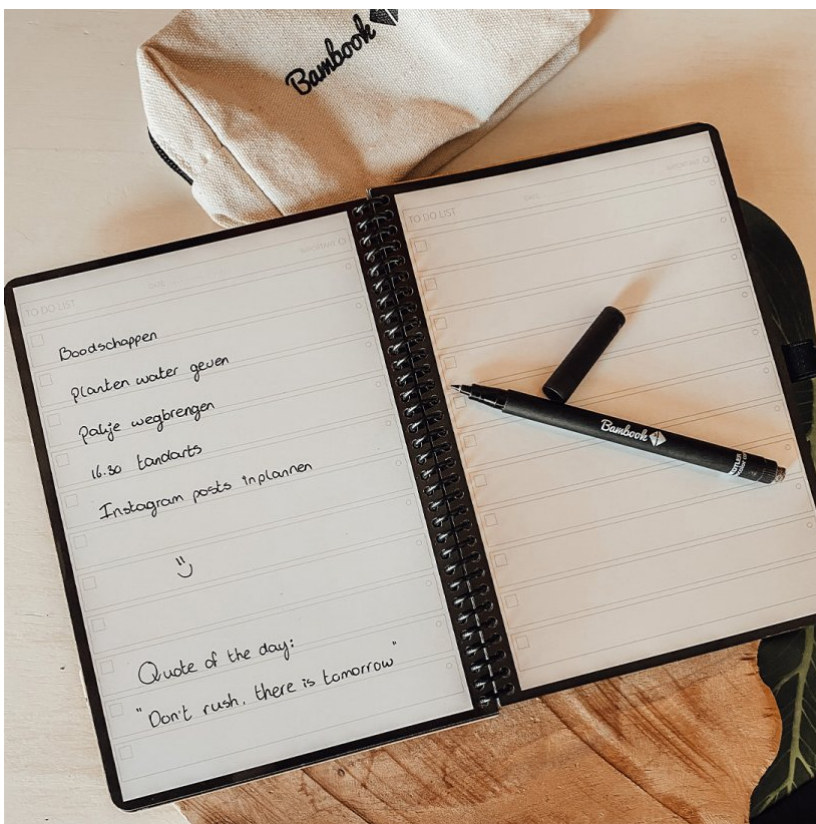 Bambook
TO DO LIST
DATE
IMPORTANT
Boodschappen
planten water geven
pakje wegbrengen
16.30 tandarts
Instagram posts inplannen
Quote of the day:
"Don't rush, there is tomorrow"
TO DO LIST
DATE
IMPORTANT
Bambook